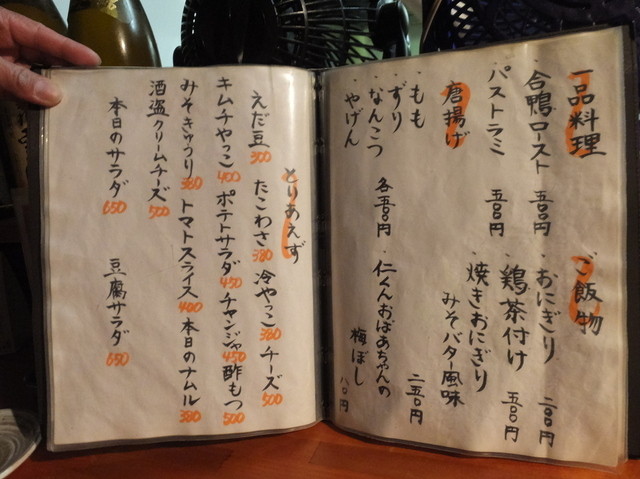 一品料理
合鴨ロースト 五〇〇円
パストラミ 五〇〇円
唐揚げ
・もも
・ずり
・なんこつ 各五五〇円
・やげん
ご飯物
・おにぎり 二〇〇円
・鶏茶付け 五〇〇円
・焼きおにぎり
みそバター風味 二五〇円
・仁くんおばあちゃんの
梅ぼし 八〇円
とりあえず
えだ豆 300 たこわさ 380 冷やっこ 380 チーズ 500
キムチやっこ 400 ポテトサラダ 450 チャンジャ 450 酢もつ 500
みそきゅうり 380 トマトスライス 400 本日のナムル 380
酒盗クリームチーズ 500
本日のサラダ 650 豆腐サラダ 650